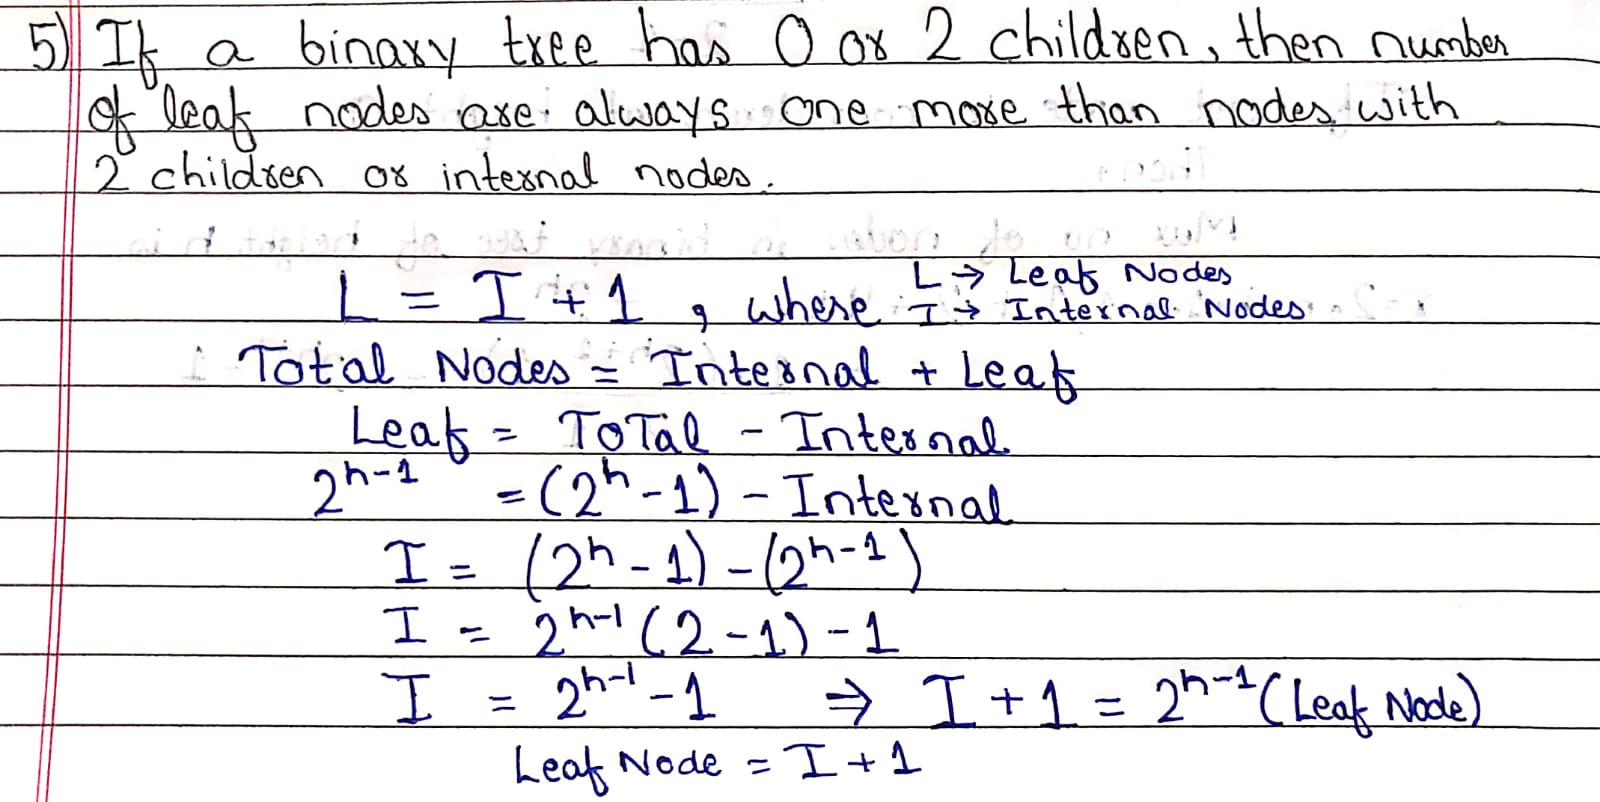 5) If a binary tree has 0 or 2 children, then number
of leaf nodes are always one more than nodes with
2 children or internal nodes.
L = I + 1 , where L → Leaf Nodes
I → Internal Nodes
Total Nodes = Internal + Leaf
Leaf = Total - Internal
2^h-1 = (2^h - 1) - Internal
I = (2^h - 1) - (2^h-1)
I = 2^h-1 (2 - 1) - 1
I = 2^h-1 - 1 ⇒ I + 1 = 2^h-1 (Leaf Node)
Leaf Node = I + 1